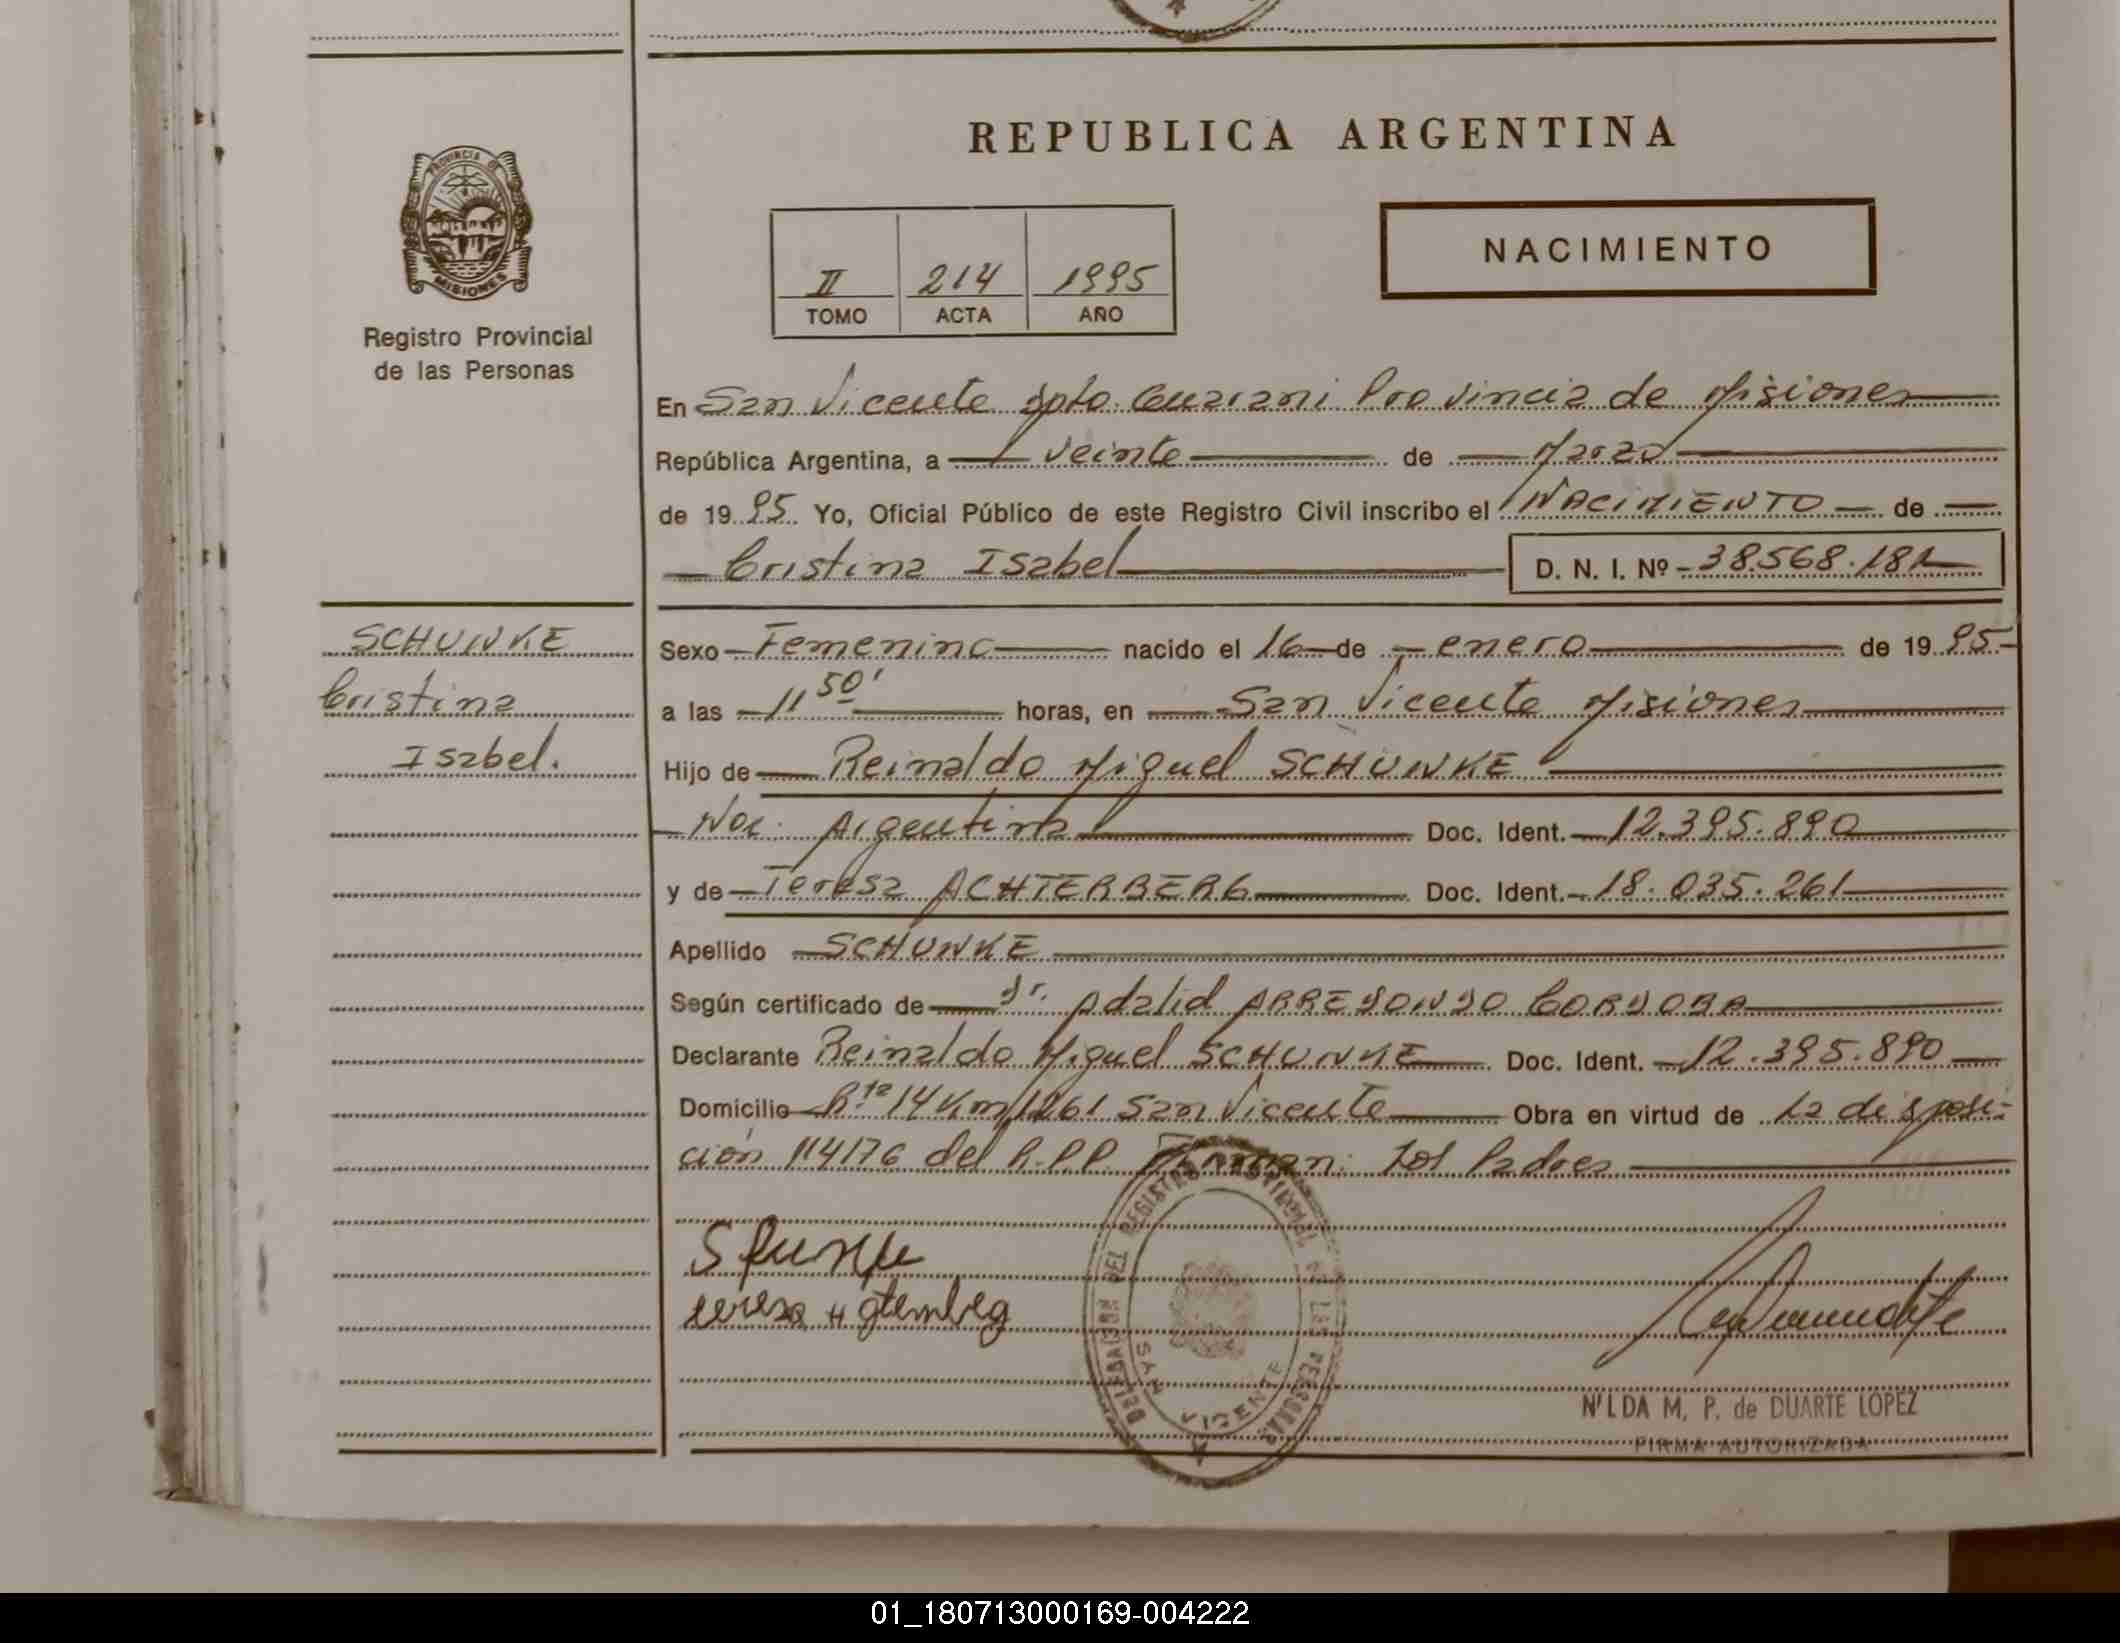 REPUBLICA ARGENTINA
PROVINCIA DE
MISIONES
Registro Provincial
de las Personas
II 214 1995
TOMO ACTA AÑO
NACIMIENTO
En San Vicente Dpto. Guarani Provincia de Misiones
República Argentina, a veinte de Marzo
de 19 95 Yo, Oficial Público de este Registro Civil inscribo el NACIMIENTO de
Cristina Isabel D. N. I. Nº 38.568.181
SCHUNKE
Cristina
Isabel.
Sexo Femenino nacido el 16 de enero de 19 95
a las 11 50' horas, en San Vicente Misiones
Hijo de Reinaldo Miguel SCHUNKE
Nac. Argentina Doc. Ident. 12.395.890
y de Teresa ACHTERBERG Doc. Ident. 18.035.261
Apellido SCHUNKE
Según certificado de Dr. Adalid ARREDONDO CORDOBA
Declarante Reinaldo Miguel SCHUNKE Doc. Ident. 12.395.890
Domicilio Rta 14 Km 1261 San Vicente Obra en virtud de la disposi-
ción 114/76 del R.P.P. Firman: Los Padres
DELEGACION DEL REGISTRO PROVINCIAL DE LAS PERSONAS
SAN VICENTE
NILDA M. P. de DUARTE LOPEZ
FIRMA AUTORIZADA
01_180713000169-004222